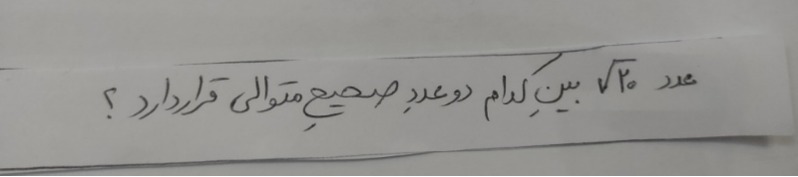 عدد √۲۰ بینِ کدام دو عددِ صحیحِ متوالی قرار دارد ؟